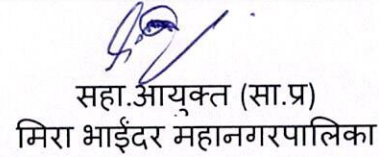 सहा.आयुक्त (सा.प्र)
मिरा भाईंदर महानगरपालिका